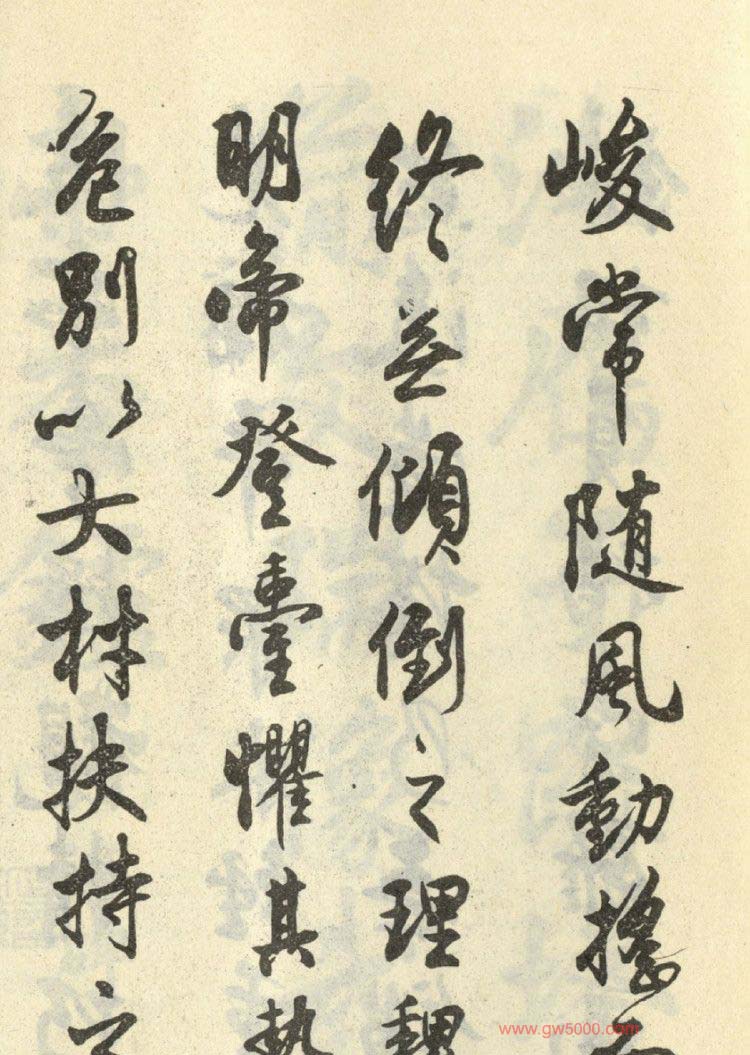 峻常随風動搖而
終無傾倒之理魏
明帝登臺懼其勢
危別以大材扶持之
www.gw5000.com